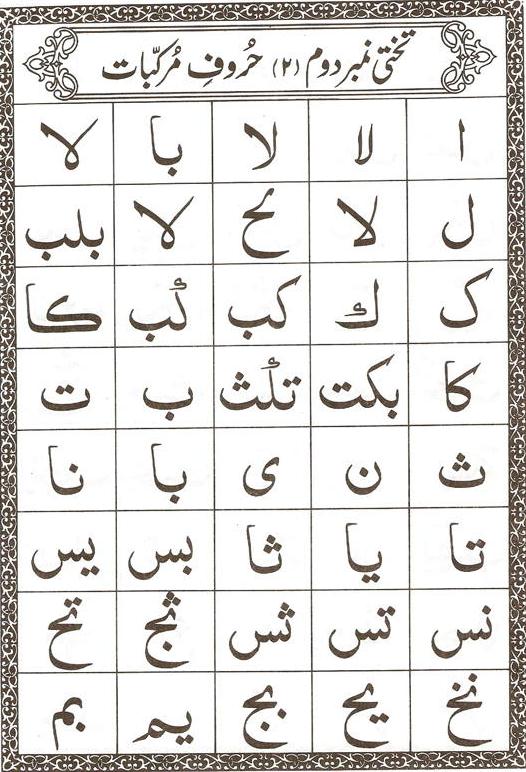 تختی نمبر دوم (۲) حُروفِ مُرکّبات
ا لا لا با لا
ل لا لح لا بلب
ک ك کب كُب کا
کا بکت تلث ب ت
ث ن ی با نا
تا یا ثا بس یس
نس تس ثس ثج تح
نخ یح بج یم بم